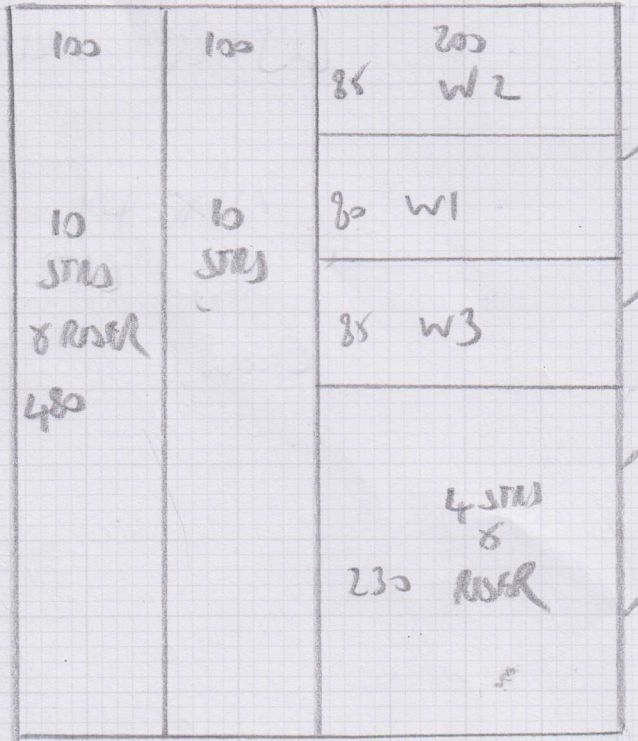 100
10
STRS
& RISER
480
100
10
STRS
200
85 W2
80 W1
85 W3
4 STRS
&
230 RISER